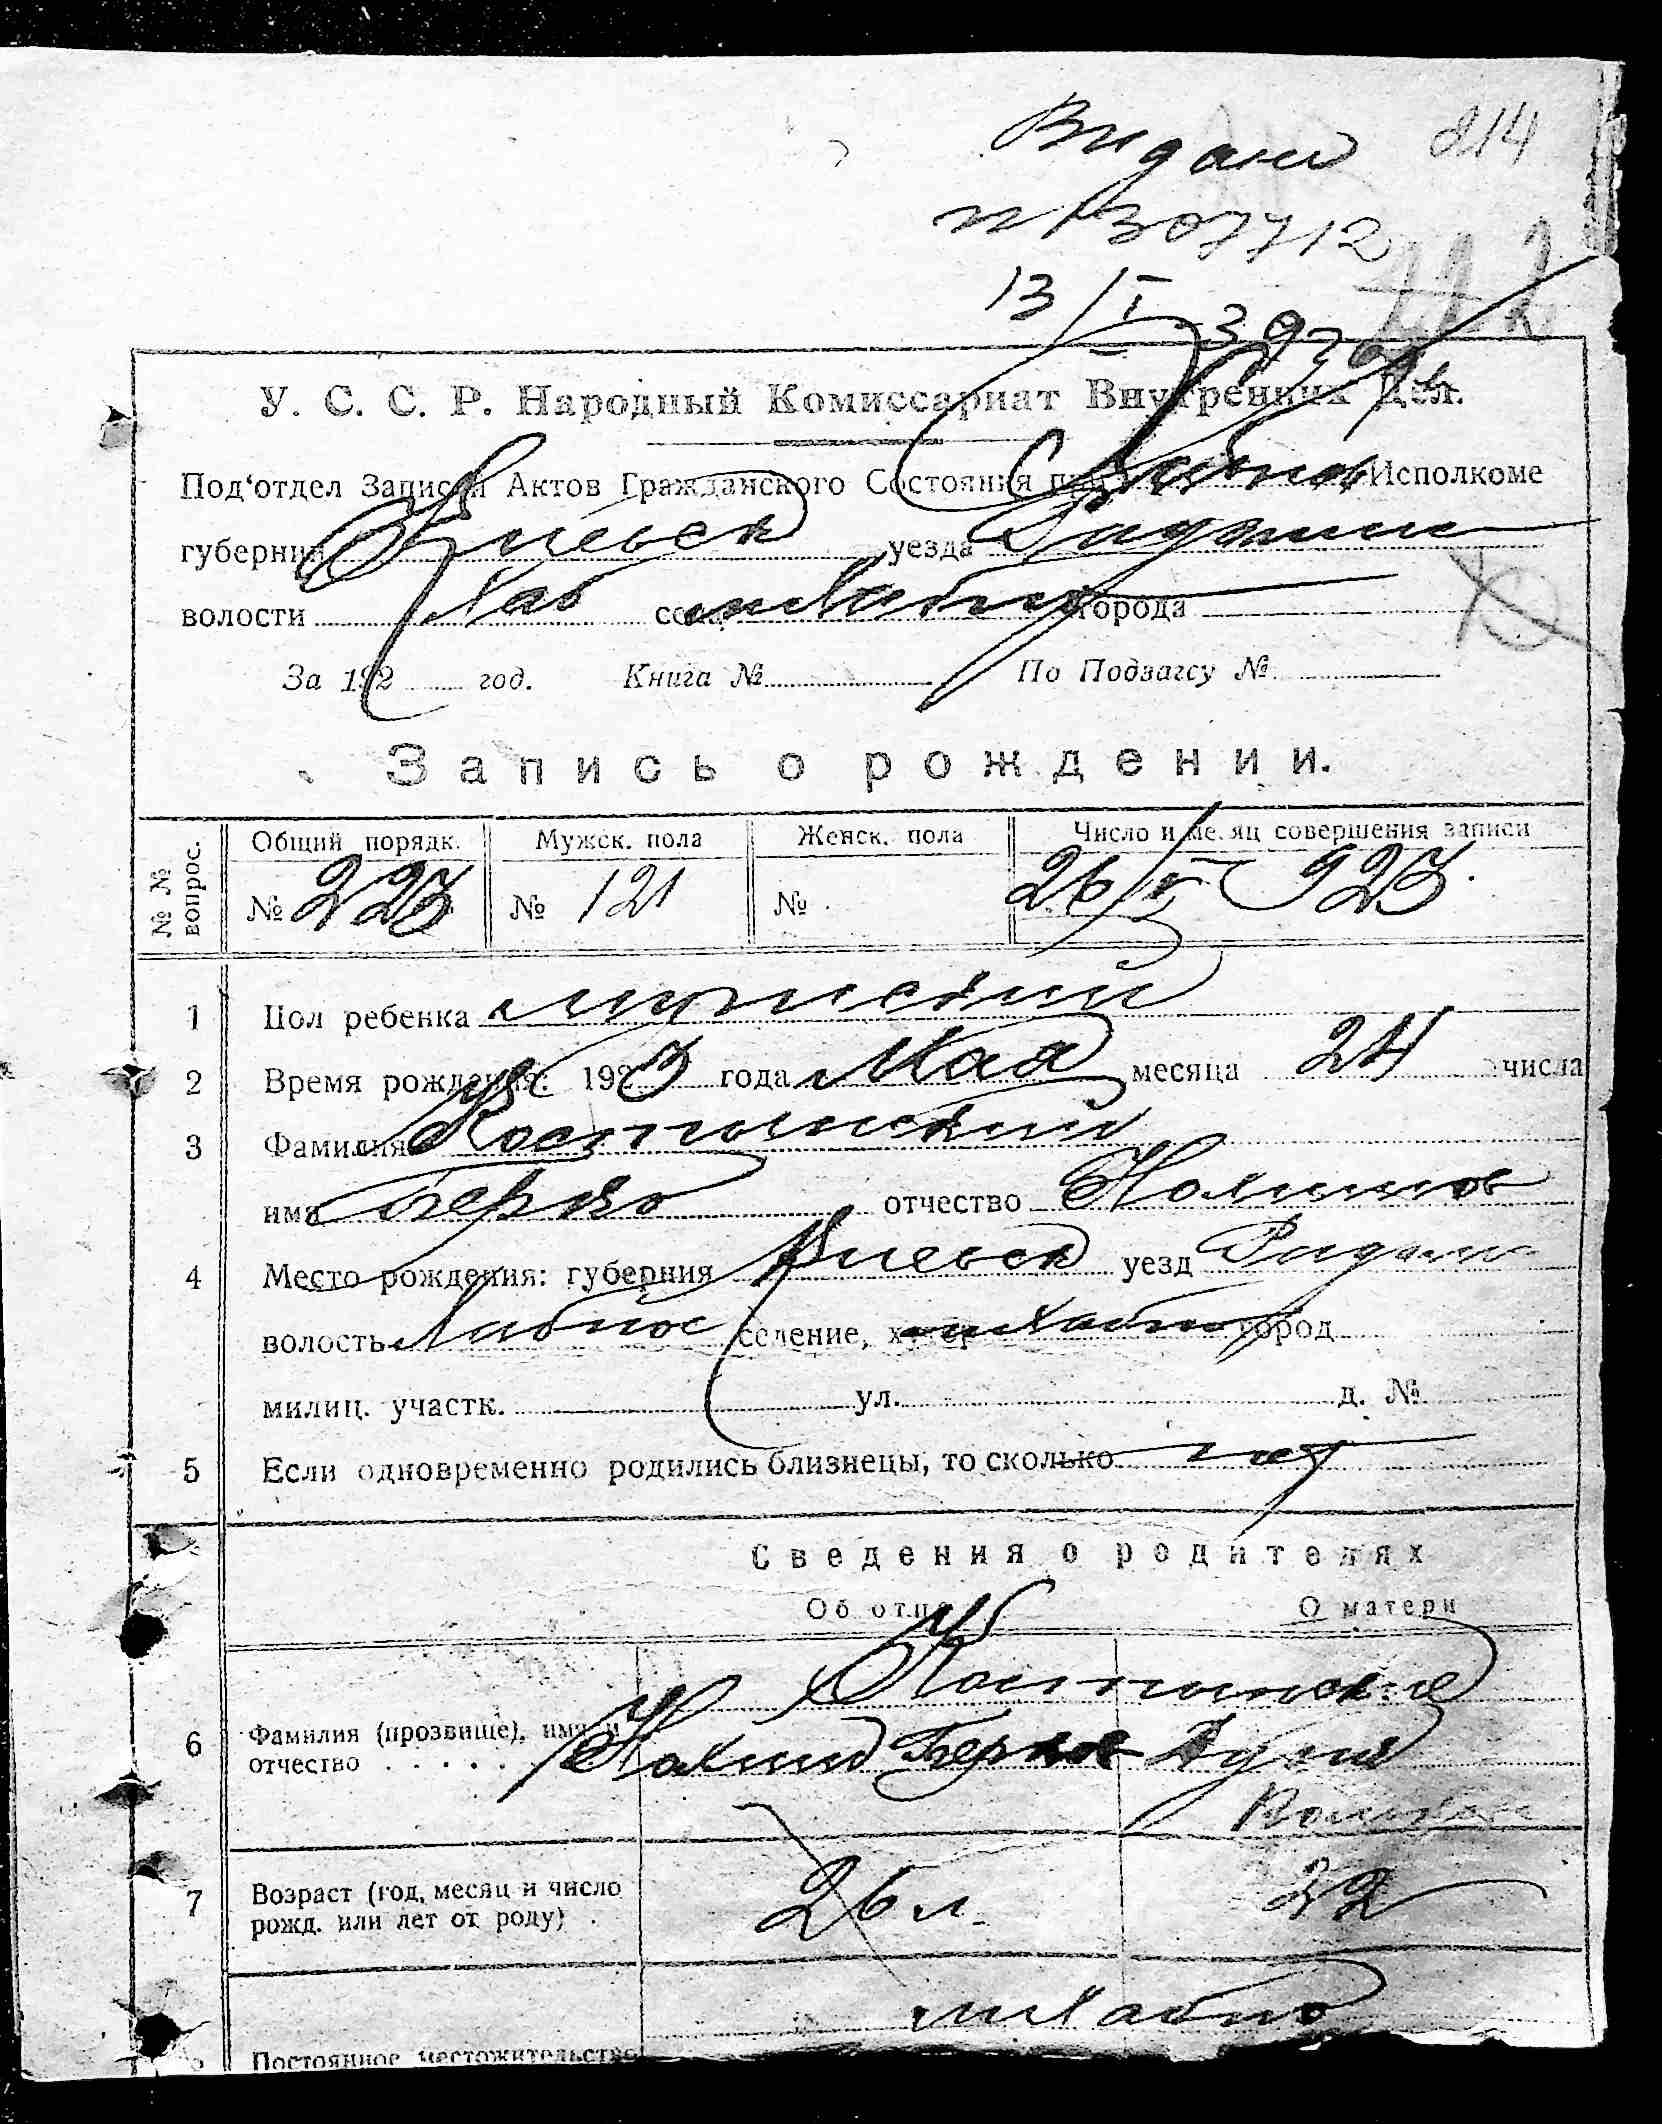 Видано 214
№ 307712
13/I 39
У. С. С. Р. Народный Комиссариат Внутренних Дел.
Под'отдел Записи Актов Гражданского Состояния при Хабнов Исполкоме
губернии Киевск уезда
волости Хаб села м Хабно города
За 192 год. Книга № По Подзагсу №
Запись о рождении.
№ № вопрос. Общий порядк. Мужск. пола Женск. пола Число и месяц совершения записи
№ 223 № 121 № 26/V 923
1 Пол ребенка мужской
2 Время рождения: 1923 года Мая месяца 24 числа
3 Фамилия
имя Берко отчество
4 Место рождения: губерния Киевск уезд
волость Хабнос селение, хутор м Хабно город
милиц. участк. ул. д. №
5 Если одновременно родились близнецы, то сколько нет
Сведения о родителях
Об отце О матери
6 Фамилия (прозвище), имя и
отчество . . . . . Берков
7 Возраст (год, месяц и число 26 л. 22
рожд. или лет от роду) .
м Хабно
Постоянное местожительство